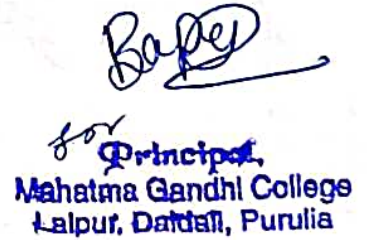 for
Principal,
Mahatma Gandhi College
Lalpur, Daldali, Purulia